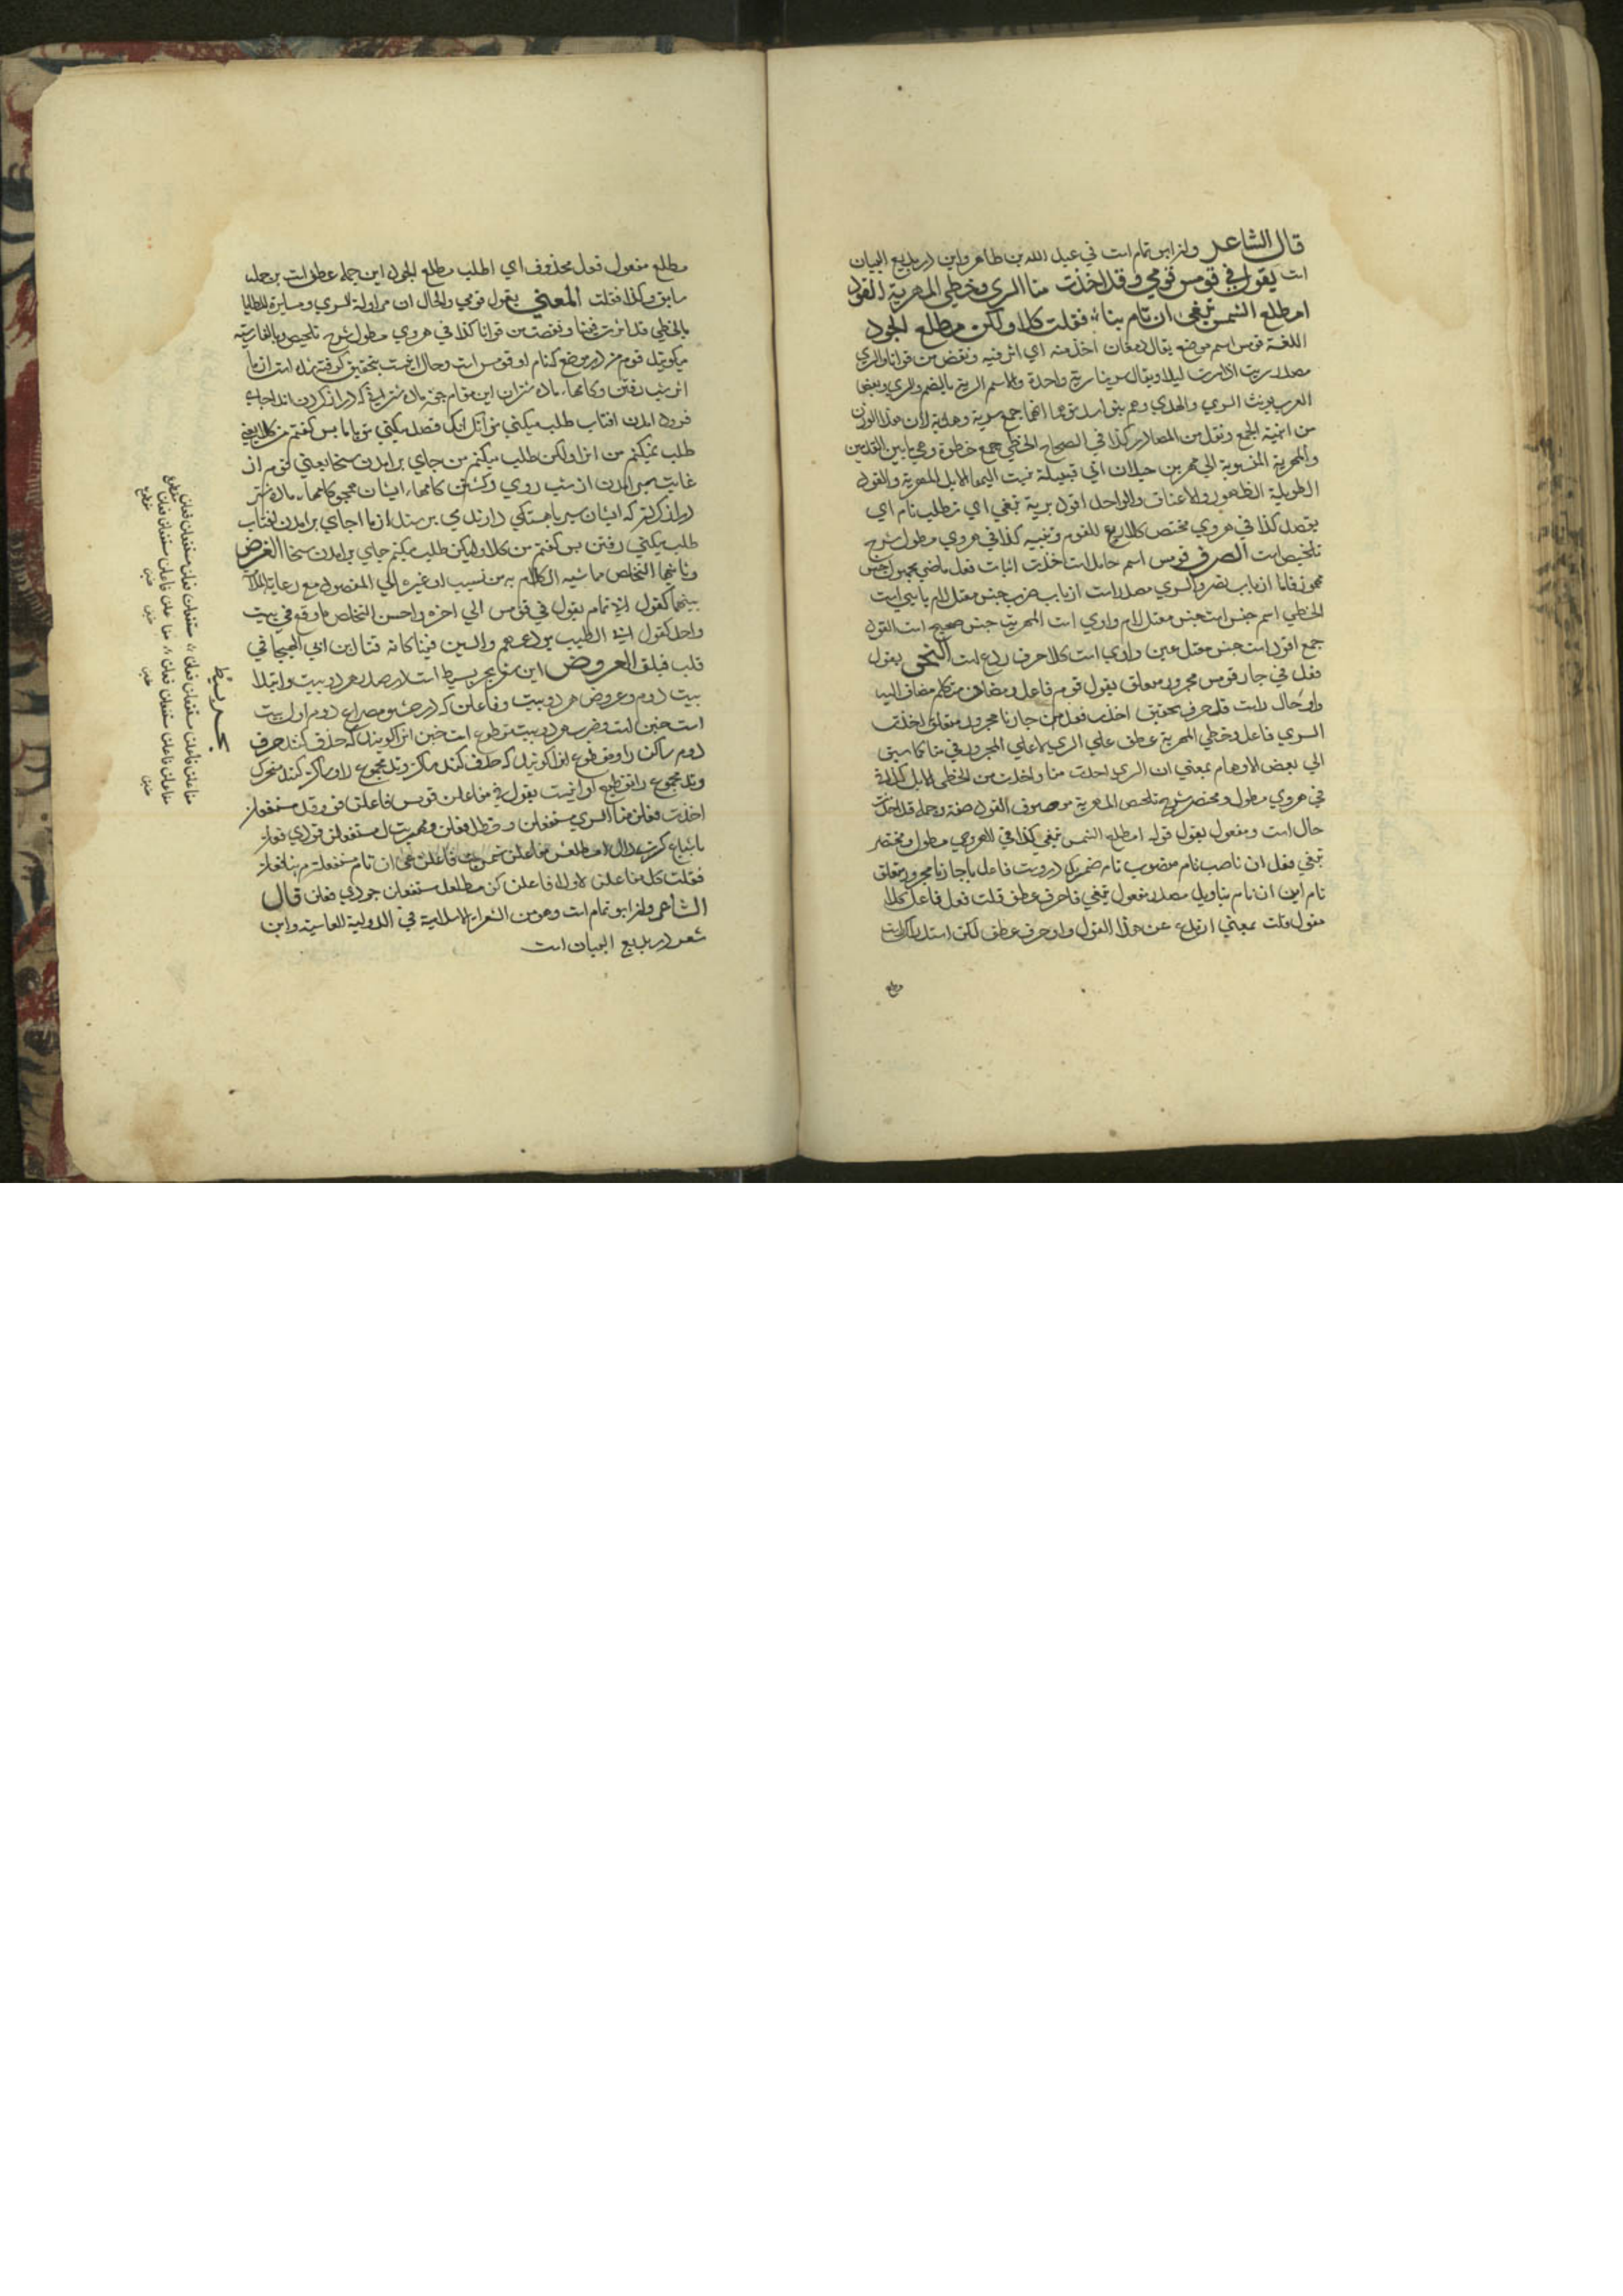 قال الشاعر وان ابو تمام است في عبد الله بن طاهر واين در بديع البيان
است يقول في قومس قومي وقد اخذت منا السري وخطي المهرية القود
امطلع الشمس تبغي ان تام بنا فقلت كلا ولكن مطلع الجود
اللغة قومس اسم موضع يقال دمغان اخذ منه اي اثر فيه ونقص من قوانا والسري
مصدر سريت اذا سرت ليلا ويقال سرينا سرية واحدة والاسم السرية بالضم والسري وبعض
العرب يونث السري والهدي وهم بنو اسد توهما انهما جمع سرية وهدية لان هذا الوزن
من ابنية الجمع ويقل من المصادر كذا في الصحاح الخطي جمع خطوة وهي ما بين القدمين
والمهرية المنسوبة الي مهر بن حيدان ابي قبيلة نسبت اليها الابل المهرية والقود
الطويلة الظهور والاعناق والواحد اقود تبغي اي تطلب تام اي
يقصد كذا في هروي مختصر كلا ردع للقوم وتنبيه كذا في هروي مطول شرح
تلخيص است الصرف قومس اسم جامد است اخذت اثبات فعل ماضي مجهول جنس
مهموز فا از باب نصر والسري مصدر است از باب ضرب جنس معتل لام يايي است
الخطي اسم جنس است جنس معتل لام واوي است المهرية جنس صحيح است القود
جمع اقود است جنس معتل عين واوي است كلا حرف ردع است النحو يقول
فعل في جار قومس مجرور متعلق يقول قوم فاعل ومضاف متكلم مضاف اليه
واو حال راست قد حرف تحقيق اخذت فعل من جار نا مجرور متعلق اخذت
السري فاعل وخطي المهرية عطف علي السري لا علي المجرور في منا كما سبق
الي بعض الاوهام بمعني ان السري اخذت منا واخذت من الخطي الابل كذا
في هروي مطول ومختصر شرح تلخيص المهرية موصوف القود صفة وجمله قد اخذت
حال است ومفعول يقول قوله امطلع الشمس تبغي كذا في للهروي مطول ومختصر
تبغي فعل ان ناصب تام منصوب تام ضمير كه دروست فاعل با جار نا مجرور متعلق
تام اين ان تام بتاويل مصدر مفعول تبغي فا حرف عطف قلت فعل فاعل كلا
مقول قلت بمعني ارتدع عن هذا القول واو حرف عطف لكن استدراك است
مطلع مفعول فعل محذوف اي اطلب مطلع الجود اين جمله عطف است بر جمله
سابق وكذا فقلت المعني يقول قومي والحال ان مزاولة السري ومسايرة المطايا
بالخطي قد اثرت فينا ونقصت من قوانا كذا في هروي مطول شرح تلخيص وبالفارسيه
ميكويد قوم من در موضع كه نام او قومس است وحال اينست بتحقيق كرفته شده است از ما
اثر شب رفتن وكامها ماده شتران
فرود امدن افتاب طلب ميكني
طلب نميكنم من انرا ولكن طلب ميكنم من جاي بر امدن سخا يعني قوم از
غايت سير امدن از شب روي وكشتن كامها ايشان همچو كامها ماده شتر
دراز كه ايشان سير باهستكي دارند بر سند از ما اجاي بر امدن افتاب
طلب ميكني رفتن پس كفتم من كلا وليكن طلب ميكنم جاي بر امدن سخا الغرض
وثانيها التخلص مما شبه الكلام به من نسيب او غيره الي المقصود مع رعاية الملاءمة
بينهما كقول ابي تمام يقول في قومس الي اخره واحسن التخلص ما وقع في بيت
واحد كقول ابي الطيب نودعهم والبين فينا كانه قنا ابن ابي الهيجا في
قلب فيلق العروض اين شعر بحر بسيط است در صدر هر دو بيت وابتدا
بيت دوم وعروض هر دو بيت وفاعلن كه در حشو مصراع دوم اول بيت
است خبن است وضرب هر دو بيت مقطوع است خبن انرا كويند كه حذف كنند حرف
دوم ساكن را ومقطوع انرا كويند كه حذف كنند ساكن وتد مجموع را وساكن كنند متحرك
وتد مجموع را تقطيع او اينست يقول في مفاعلن قومس فاعلن قومي وقد مستفعلن
اخذت فعلن منا السري مستفعلن وخطل فعلن مهريت ل مستفعلن قودي فعلن
باشباع كسرت دال امطلعش مفاعلن شمس تب فاعلن غي ان تام مستفعلن م بنا فعلن
فقلت كل مفاعلن لا ولا فاعلن كن مطلعل مستفعلن جودي فعلن قال
الشاعر وان ابو تمام است وهو من الشعراء الاسلامية في الدولة العباسية واين
شعر در بديع البيان است
بحر بسيط
مفاعلن فاعلن مستفعلن فعلن مستفعلن فعلن مستفعلن فعلن
مفاعلن فاعلن مستفعلن فعلن مفاعلن فاعلن مستفعلن فعلن
خبن خبن خبن خبن مقطوع
مقطوع